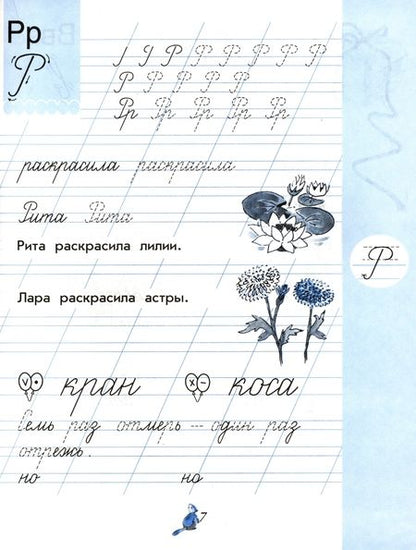 Рр
Р
Р Р Р Р Р Р
Р Р Р Р Р
Рр Рр Рр Рр Рр
раскрасила раскрасила
Рита Рита
Рита раскрасила лилии.
Р
Лара раскрасила астры.
кран коса
Семь раз отмерь — один раз
отрежь.
но но
7